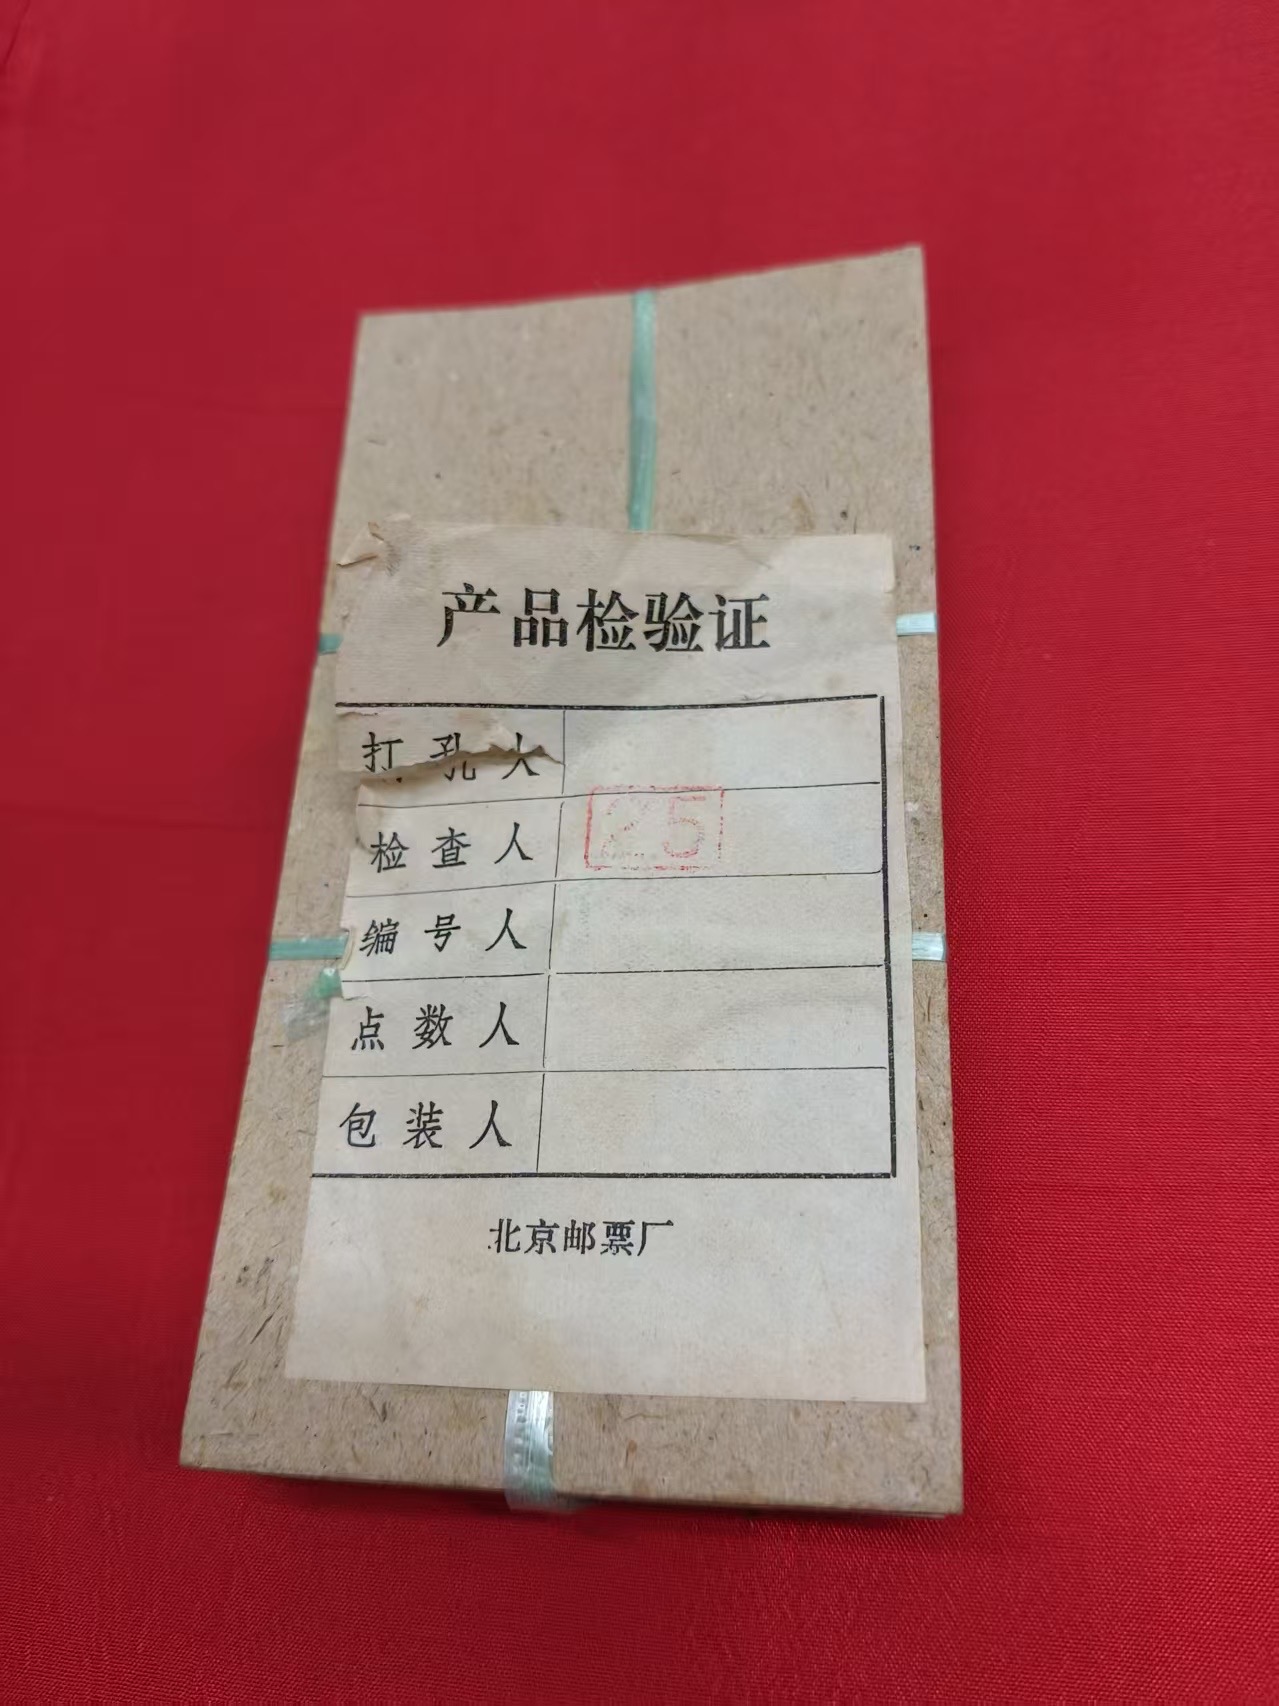 产品检验证
打孔人
检查人 25
编号人
点数人
包装人
北京邮票厂